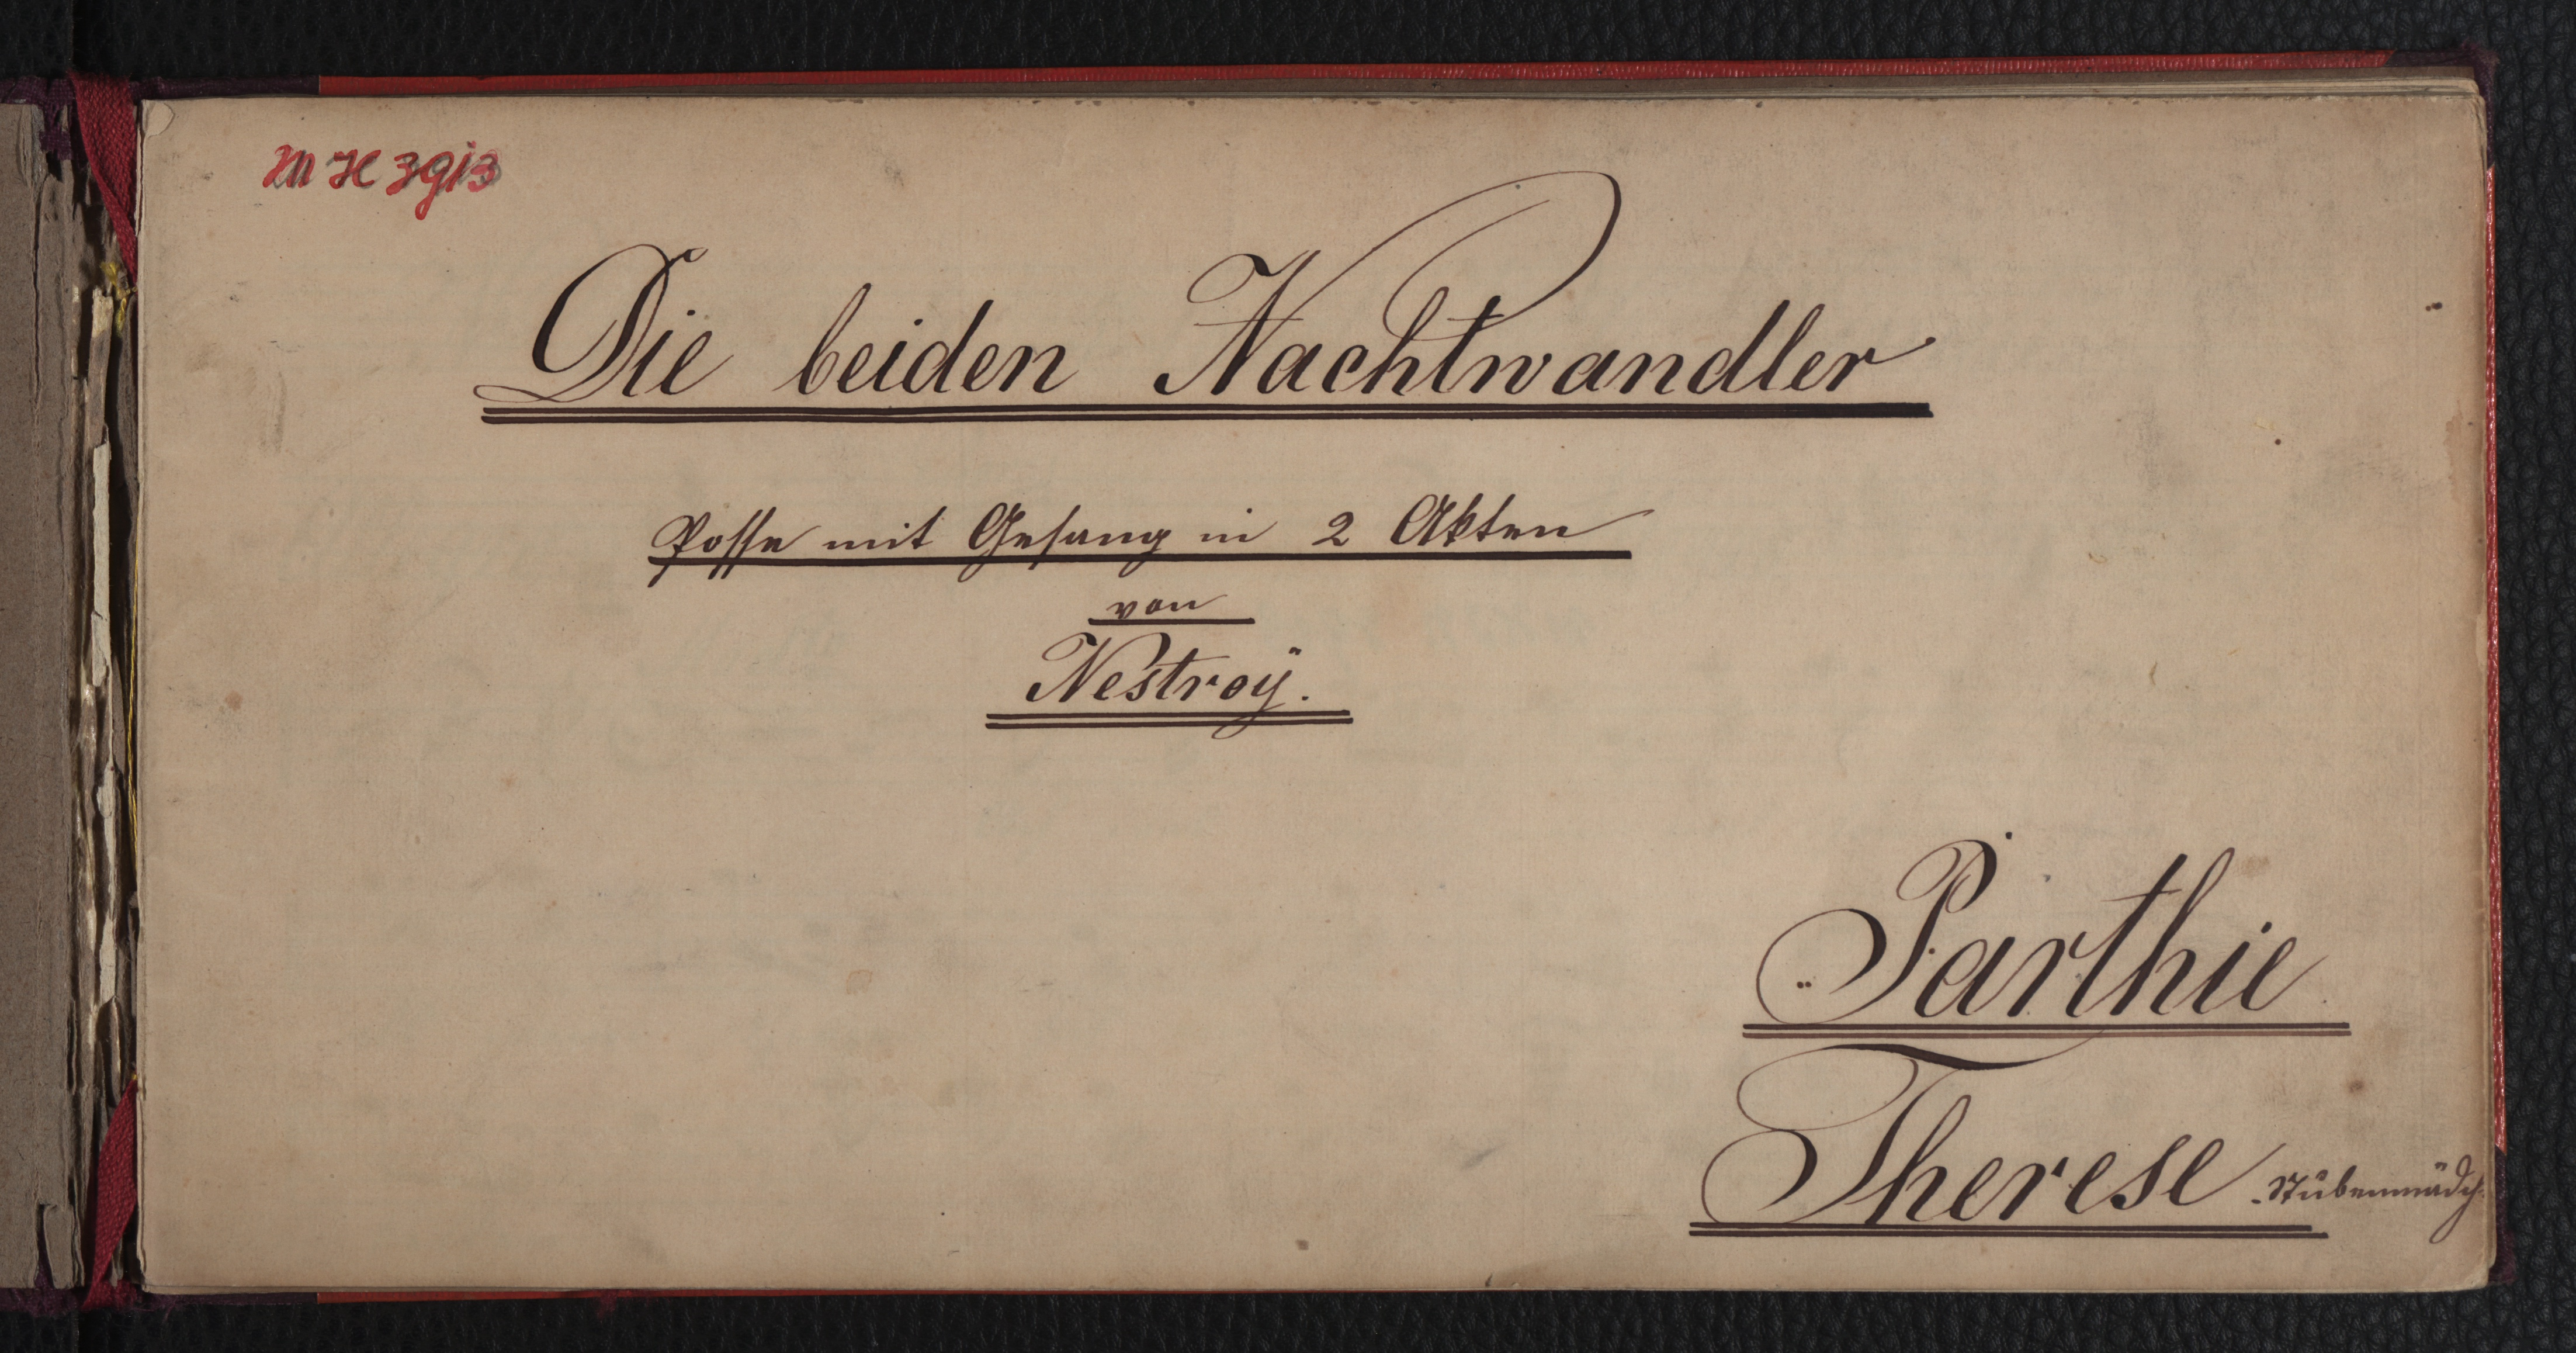 MH 3913
Die beiden Nachtwandler
Posse mit Gesang in 2 Akten
von
Nestroÿ.
Parthie
Therese Stubenmädch.